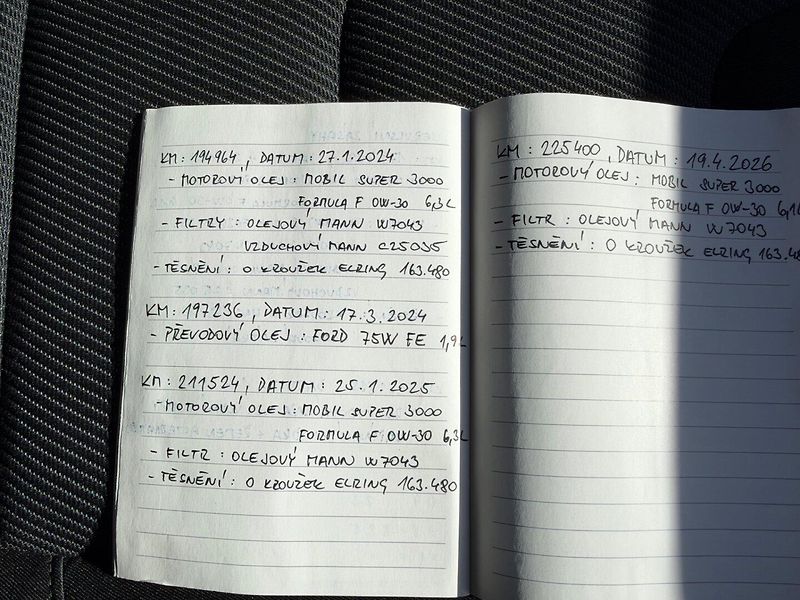 KM : 194964 , DATUM : 27.1.2024
- MOTOROVÝ OLEJ : MOBIL SUPER 3000
FORMULA F 0W-30 6,3L
- FILTRY : OLEJOVÝ MANN W7043
VZDUCHOVÝ MANN C25035
- TĚSNĚNÍ : O KROUŽEK ELRING 163.480
KM : 197236 , DATUM : 17.3.2024
- PŘEVODOVÝ OLEJ : FORD 75W FE 1,9L
KM : 211524 , DATUM : 25.1.2025
- MOTOROVÝ OLEJ : MOBIL SUPER 3000
FORMULA F 0W-30 6,3L
- FILTR : OLEJOVÝ MANN W7043
- TĚSNĚNÍ : O KROUŽEK ELRING 163.480
KM : 225400 , DATUM : 19.4.2026
- MOTOROVÝ OLEJ : MOBIL SUPER 3000
FORMULA F 0W-30 6,1L
- FILTR : OLEJOVÝ MANN W7043
- TĚSNĚNÍ : O KROUŽEK ELRING 163.48